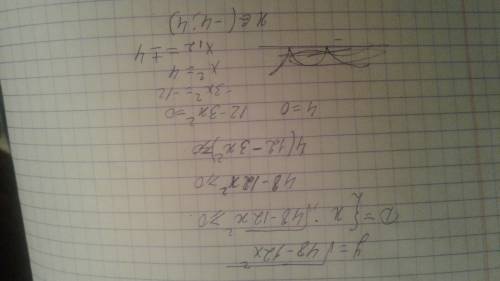 y = √48-12x²
D = { x : √48-12x² ≥ 0
48-12x² ≥ 0
4(12-3x²) ≥ 0
4=0 12-3x²=0
-3x² = -12
x² = 4
x₁,₂ = ±4
x ∈ (-4; 4)